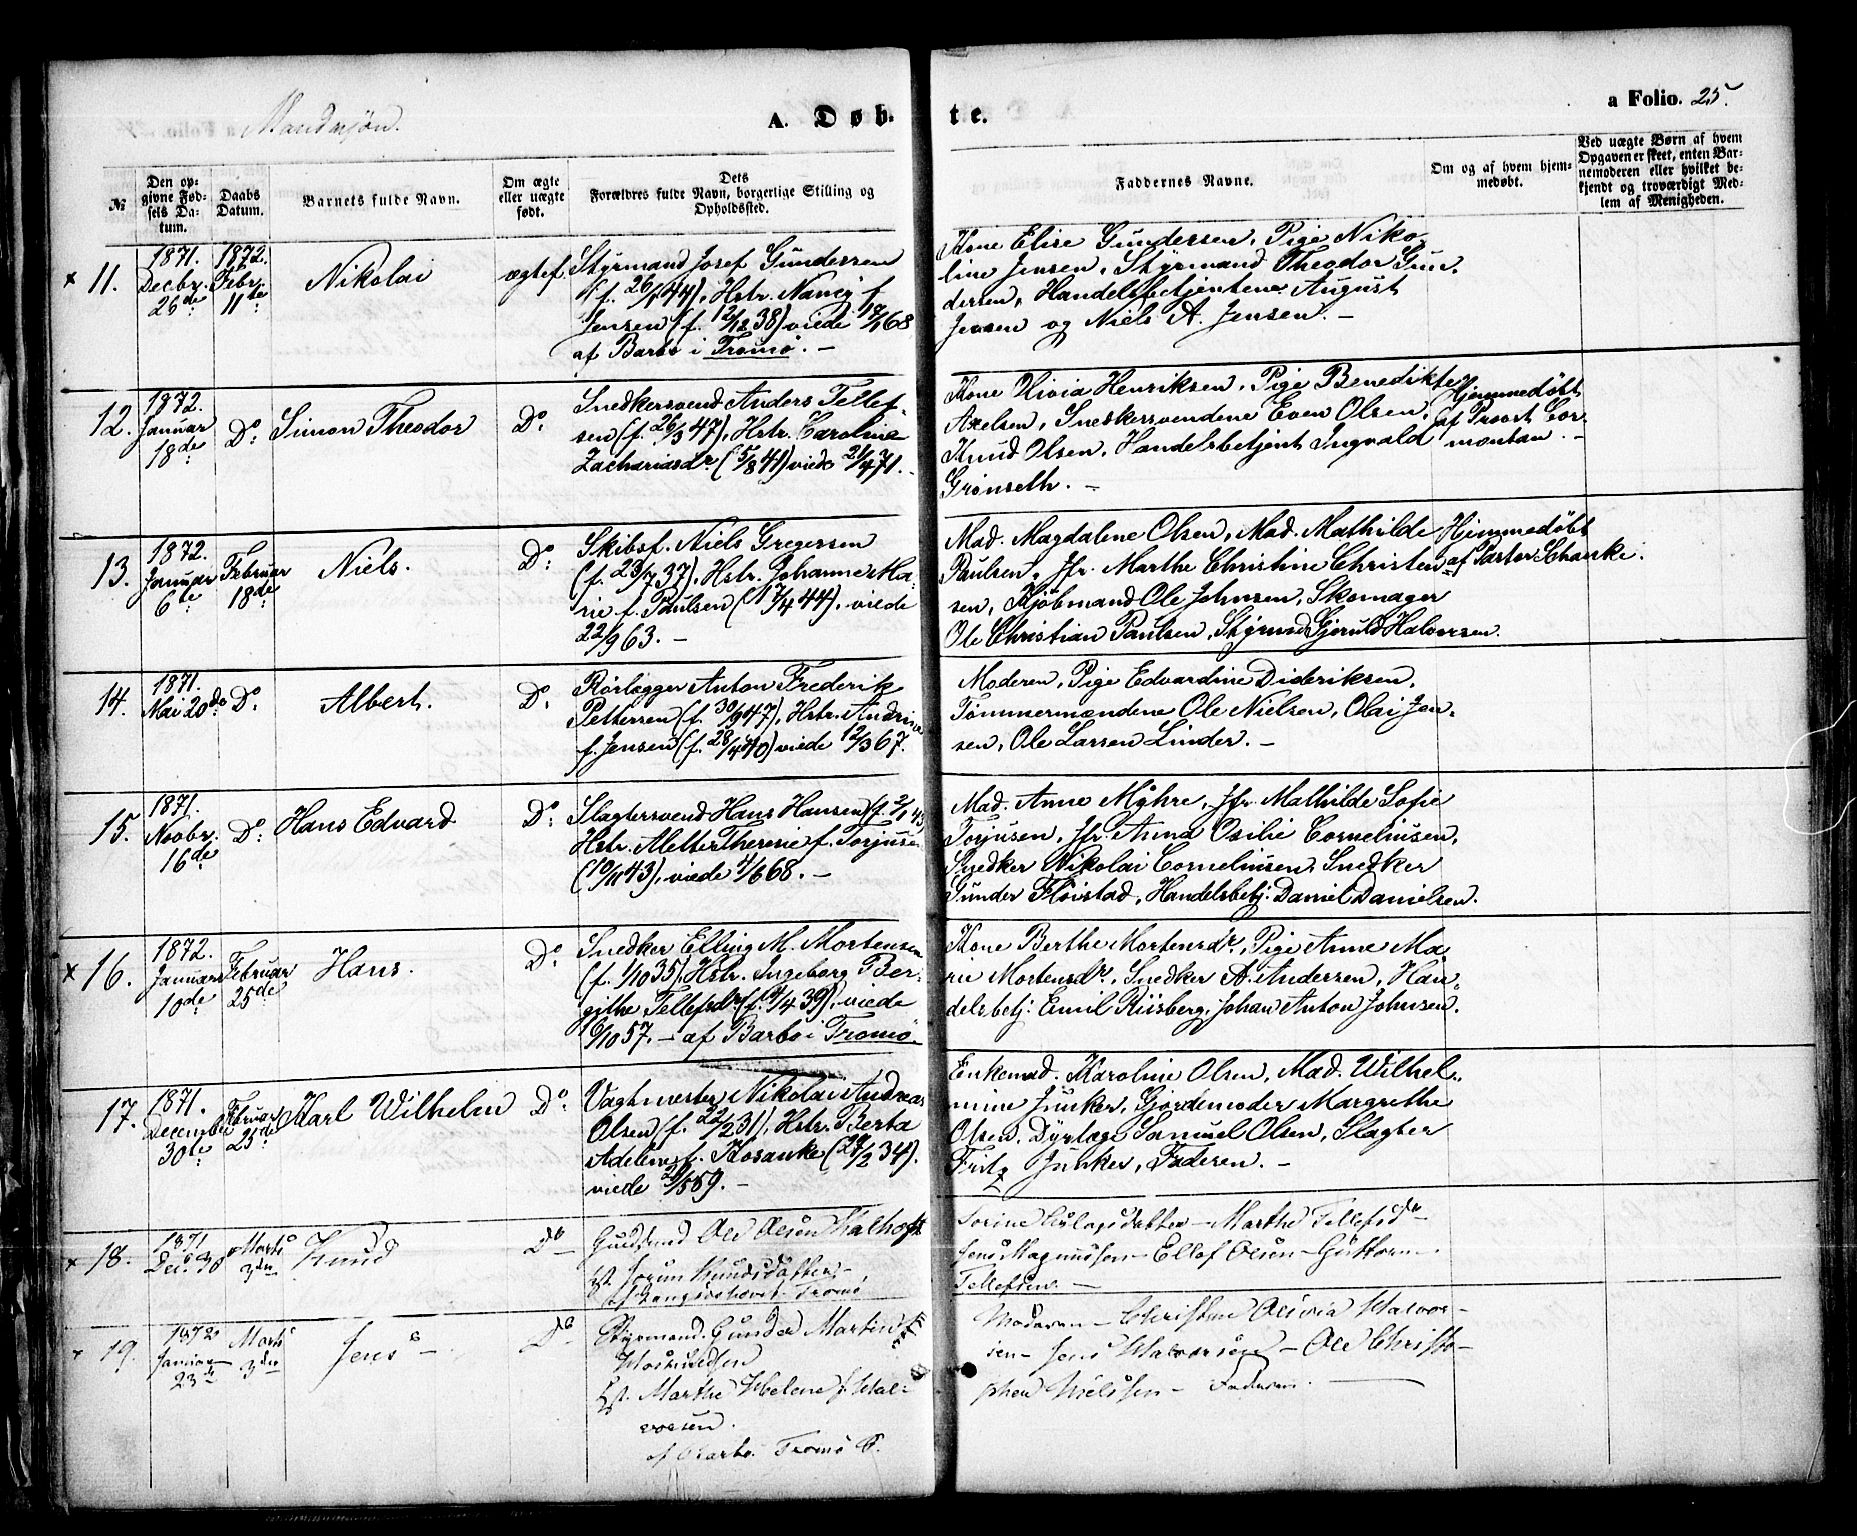 Mandkjøn.
A. Døb-
te.
a Folio. 25.
№
Den op-
givne Fød-
sels Da-
tum.
Daabs
Datum.
Barnets fulde Navn.
Om ægte
eller uægte
født.
Dets
Forældres fulde Navn, borgerlige Stilling og
Opholdssted.
Faddernes Navne.
Om og af hvem hjem-
medøbt.
Ved uægte Børn af hvem
Opgaven er skeet, enten Bar-
nemoderen eller hvilket be-
kjendt og troværdigt Med-
lem af Menigheden.
x 11.
1871.
Decbr.
26de
1872.
Febr.
11te
Nikolai
ægtef.
Styrmand Josef Gundersen
(f. 26/1 44), Hstr. Nancy f.
Jensen (f. 12/12 38) viede 18/1 68
af Barbo i Tromø. –
Kone Elise Gundersen, Pige Niko-
line Jensen, Styrmand Theodor Gun-
dersen, Handelsbetjentene August
Jensen og Niels A. Jensen. –
12.
1872.
Januar
18de
Do:
Simon Theodor
Do:
Snedkersvend Anders Tellef-
sen (f. 26/3 47), Hstr. Caroline
Zachariasdr. (5/8 41) viede 21/4 71. –
Kone Olivia Henriksen, Pige Benedikte
Axelsen, Snedkersvendene Even Olsen,
Knud Olsen, Handelsbetjent Ingvald
Grønseth. –
Hjemmedøbt
af Provst Cor-
montan. –
13.
1872.
Januar
6te
Februar
18de
Niels.
Do:
Skibsf. Niels Gregersen
(f. 23/7 37), Hstr. Johanne Ma-
rie f. Paulsen (17/4 44), viede
22/9 63. –
Mad. Magdalene Olsen, Mad. Mathilde
Paulsen, Jfr. Marthe Christine Christen-
sen, Kjøbmand Ole Johnsen, Skomager
Ole Christian Paulsen, Styrmd Gjeruld Halvorsen.
Hjemmedøbt
af Pastor Schanke.
14.
1871.
Mai 20de
Do.
Albert.
Do.
Rørlægger Anton Frederik
Pettersen (f. 30/9 47), Hstr. Andrine
f. Jensen (f. 28/4 40) viede 12/3 67.
Moderen, Pige Edvardine Dideriksen,
Tømmermændene Ole Nielsen, Olai Jen-
sen, Ole Larsen Linder. –
15.
1871.
Novbr.
16de
Do:
Hans Edvard
Do:
Slagtersvend Hans Hansen (f. 2/1 43)
Hstr. Alette Therese f. Torjusen
(10/11 43), viede 4/6 68. –
Mad. Anne Myhre, Jfr. Mathilde Sofie
Torjusen, Jfr. Anna Osilie Corneliusen,
Snedker Nikolai Corneliusen, Snedker
Gunder Fløistad, Handelsbetj: Daniel Danielsen.
x 16.
1872.
Januar
10de
Februar
25de
Hans.
Do.
Snedker Elling M. Mortensen
(f. 1/10 35), Hstr. Ingeborg Ber-
githe Tellefsdr (f. 4/4 39), viede
16/10 57. – af Barbo i Tromø.
Kone Berthe Mortensdr., Pige Anne Ma-
rie Mortensdr., Snedker A. Andersen, Han-
delsbetj: Emil Riisberg, Johan Anton Johnsen.
17.
1871.
December
30te
Februar
25de
Karl Wilhelm
Do.
Vagtmester Nikolai Andreas
Olsen (f. 22/2 31), Hstr. Berta
Adeline f. Kosanke (24/2 34).
viede 2/5 59. –
Enkemad. Karoline Olsen, Mad. Wilhel-
mine Junker, Gjordemoder Margrethe
Olsen, Dyrlæge Samuel Olsen, Slagter
Fritz Junker, Faderen. –
x 18.
1871
Dec. 30
Marts
3die
Knud
Do –
Ole Olsen
Jorun Knudsdatter –
Tromø
Marthe Tellefsdr –
Jens Magnussen – Ellef Olsen – Guttorm
Tellefsen. –
19.
1872
Januar
23de
Marts
3die
Jens –
Do –
Styrmand. Gunder Martin
Marthe Helene f. Hal-
vorsen.
af Barbo. Tromø P.
Moderen – Christen Olivia Halvor-
sen – Jens Halvorsen – Ole Christo-
pher Nielsen – Faderen. –